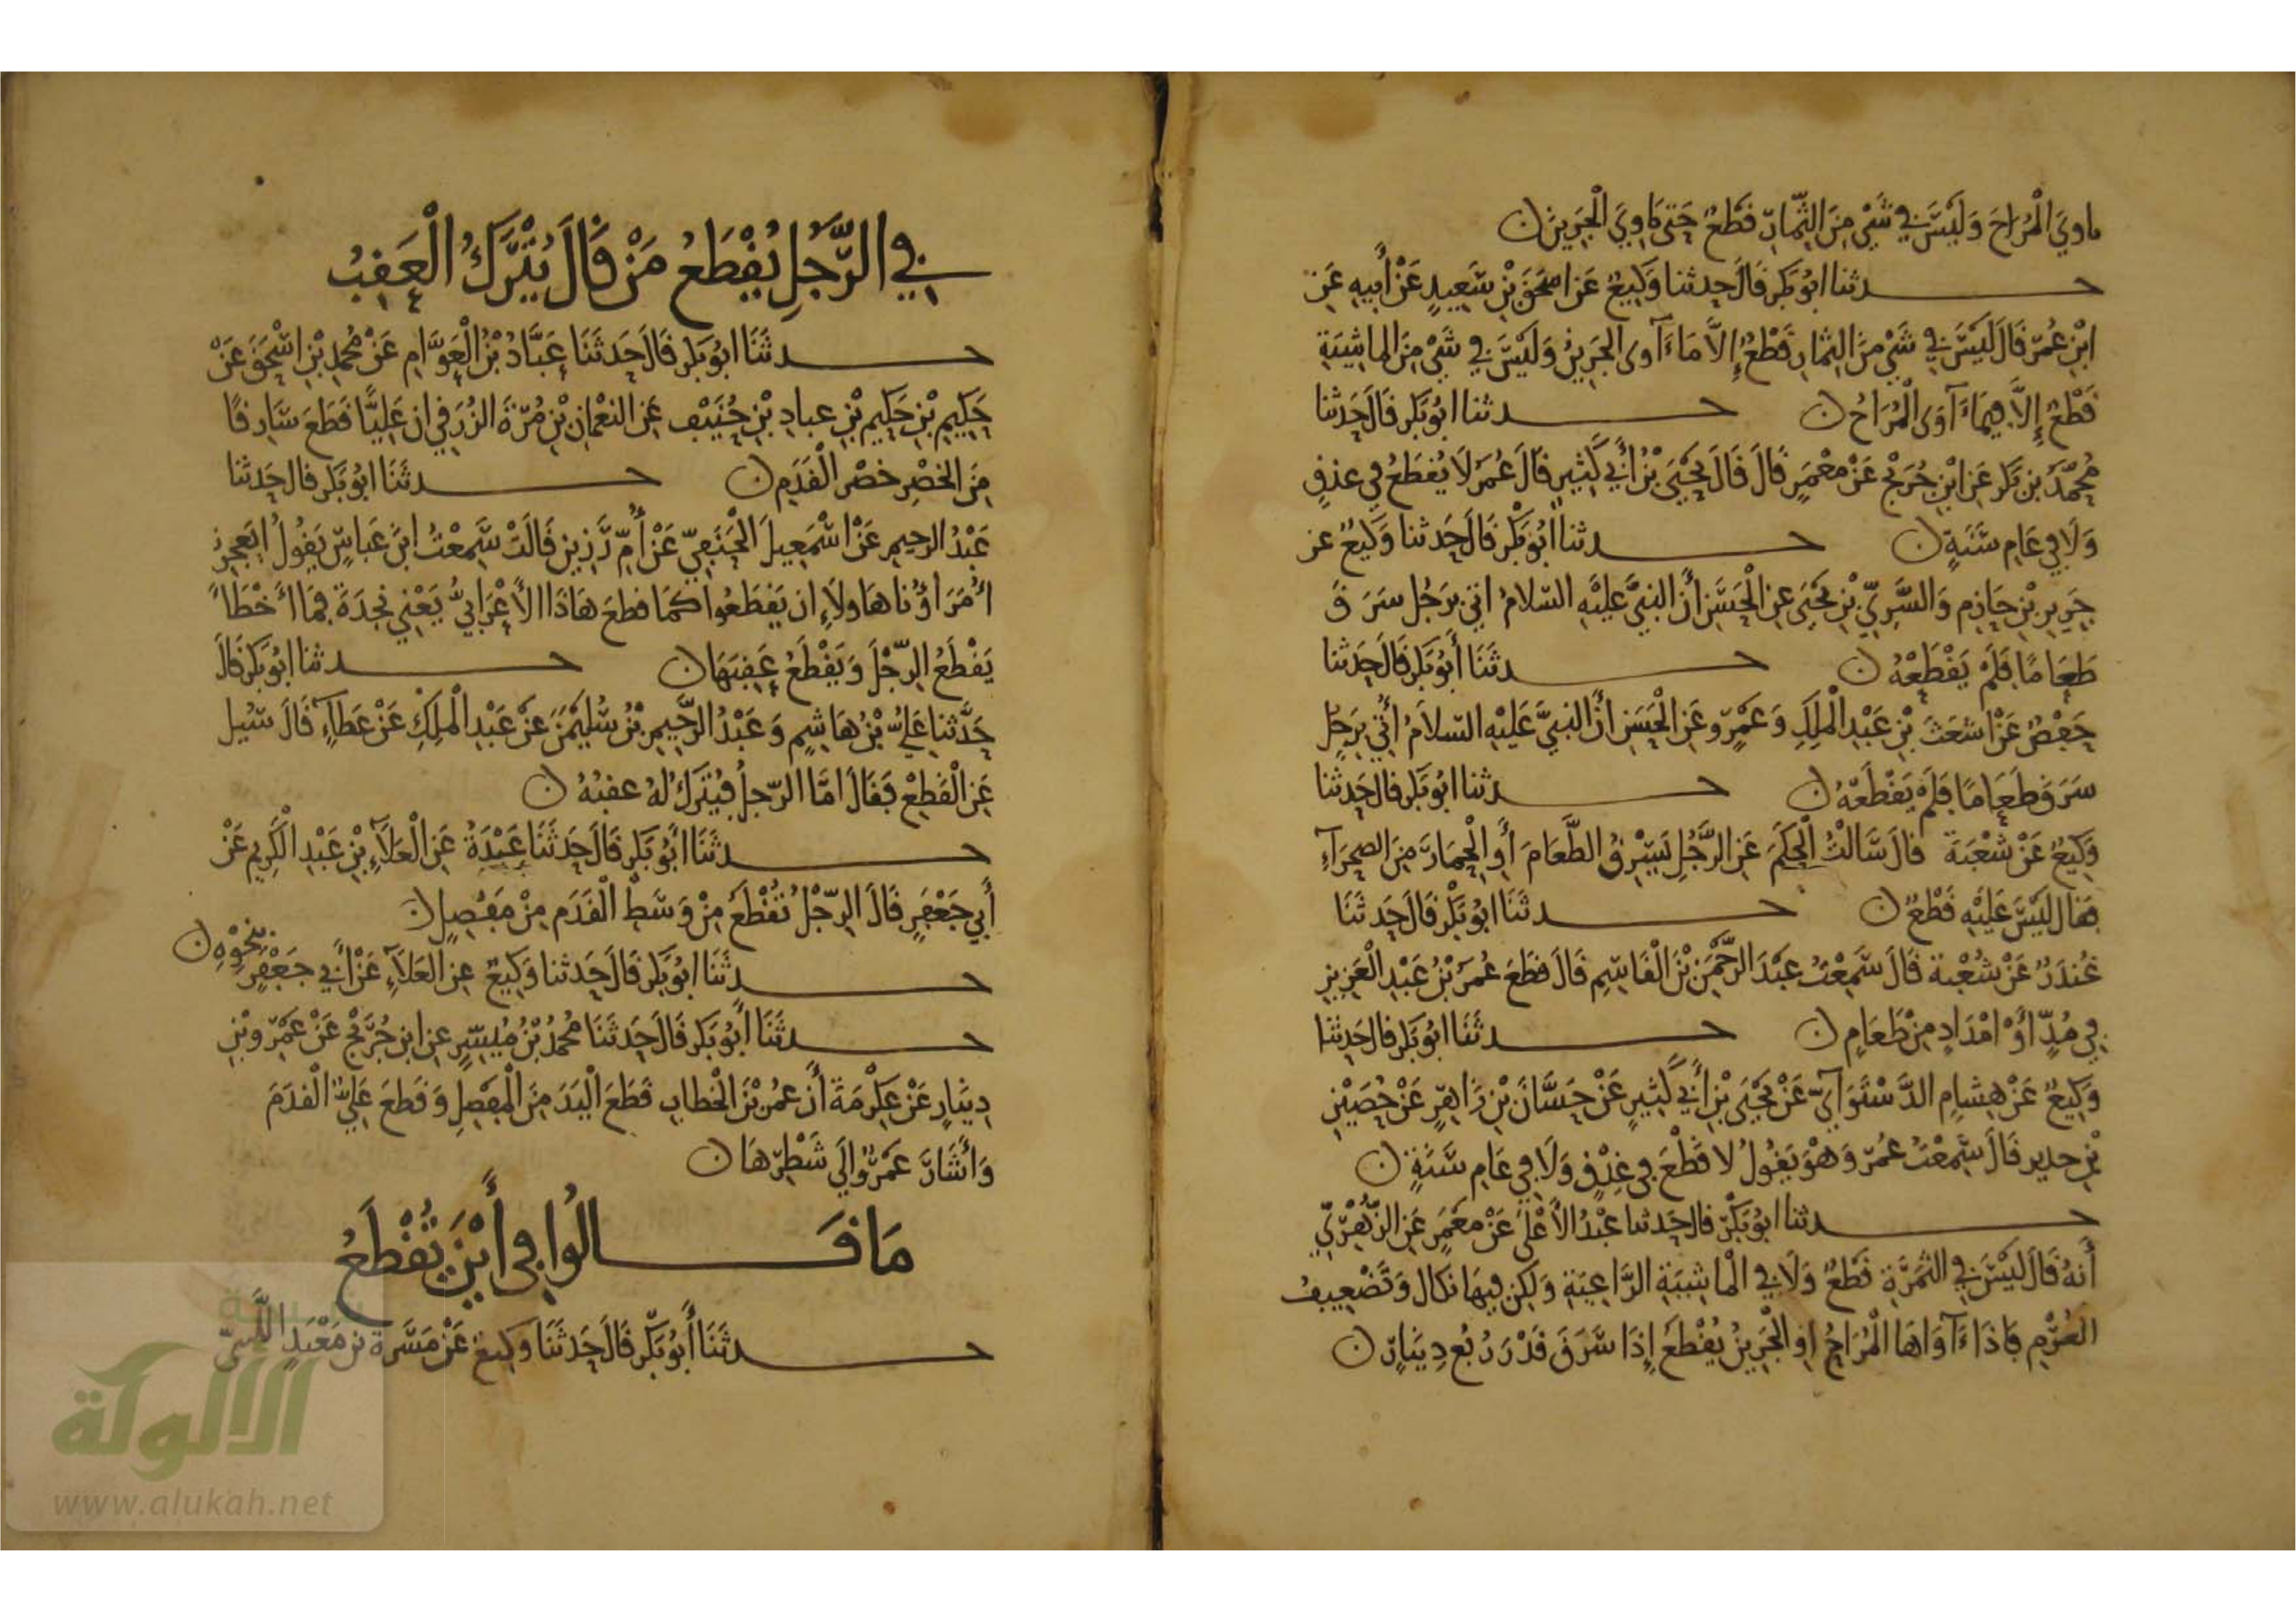 ماوي المراح وليس في شي من الثمار قطع حتى ياوي الجرين
حدثنا ابو بكر قال حدثنا وكيع عن اسحق بن سعيد عن أبيه عن
ابن عمر قال ليس في شي من الثمار قطع إلا ما ءآوى الجرين وليس في شي من الماشية
قطع إلا فيما ءآوى المراح حدثنا ابو بكر قال حدثنا
محمد بن بكر عن ابن جريج عن معمر قال قال يحيى بن أبي كثير قال عمر لا يقطع في عذق
ولا في عام سنة حدثنا أبو بكر قال حدثنا وكيع عن
جرير بن حازم والسري بن يحيى عن الحسن أن النبي عليه السلام اتي برجل سرق
طعاما فلم يقطعه حدثنا أبو بكر قال حدثنا
حفص عن اشعث بن عبد الملك وعمرو عن الحسن أن النبي عليه السلام أتي برجل
سرق طعاما فلم يقطعه حدثنا ابو بكر قال حدثنا
وكيع عن شعبة قال سالت الحكم عن الرجل يسرق الطعام أو الحمار من الصحرآء
فقال ليس عليه قطع حدثنا ابو بكر قال حدثنا
غندر عن شعبة قال سمعت عبد الرحمن بن القاسم قال قطع عمر بن عبد العزيز
في مد أو امداد من طعام حدثنا ابو بكر قال حدثنا
وكيع عن هشام الدستوآي عن يحيى بن أبي كثير عن حسان بن زاهر عن حصين
بن حدير قال سمعت عمر وهو يقول لا قطع في عذق ولا في عام سنة
حدثنا ابو بكر قال حدثنا عبد الأعلى عن معمر عن الزهري
أنه قال ليس في الثمرة قطع ولا في الماشية الراعية ولكن فيها نكال وتضعيف
الغرم فاذا ءآواها المراح او الجرين يقطع إذا سرق قدر ربع دينار
في الرجل يقطع من قال يترك العقب
حدثنا ابو بكر قال حدثنا عباد بن العوام عن محمد بن اسحق عن
حكيم بن حكيم بن عباد بن حنيف عن النعمان بن مرة الزرقي ان عليا قطع سارقا
من الخصر خصر القدم حدثنا ابو بكر قال حدثنا
عبد الرحيم عن اسمعيل الحنفي عن أم رزين قالت سمعت ابن عباس يقول ايعجز
أمراؤنا هاولاء ان يقطعوا كما قطع هاذا الأعرابي يعني نجدة فما أخطأ
يقطع الرجل ويقطع عقبها حدثنا ابو بكر قال
حدثنا علي بن هاشم وعبد الرحيم بن سليمن عن عبد الملك عن عطاء قال سيل
عن القطع فقال اما الرجل فيترك له عقبه
حدثنا أبو بكر قال حدثنا عبدة عن العلآء بن عبد الكريم عن
أبي جعفر قال الرجل تقطع من وسط القدم من مفصل
حدثنا ابو بكر قال حدثنا وكيع عن العلآء عن أبي جعفر بنحوه
حدثنا أبو بكر قال حدثنا محمد بن ميسر عن ابن جريج عن عمرو بن
دينار عن عكرمة أن عمر بن الخطاب قطع اليد من المفصل وقطع علي القدم
وأشار عمرو الي شطرها
ما قالوا في أين تقطع
حدثنا أبو بكر قال حدثنا وكيع عن مسرة بن معبد
الألوكة
www.alukah.net